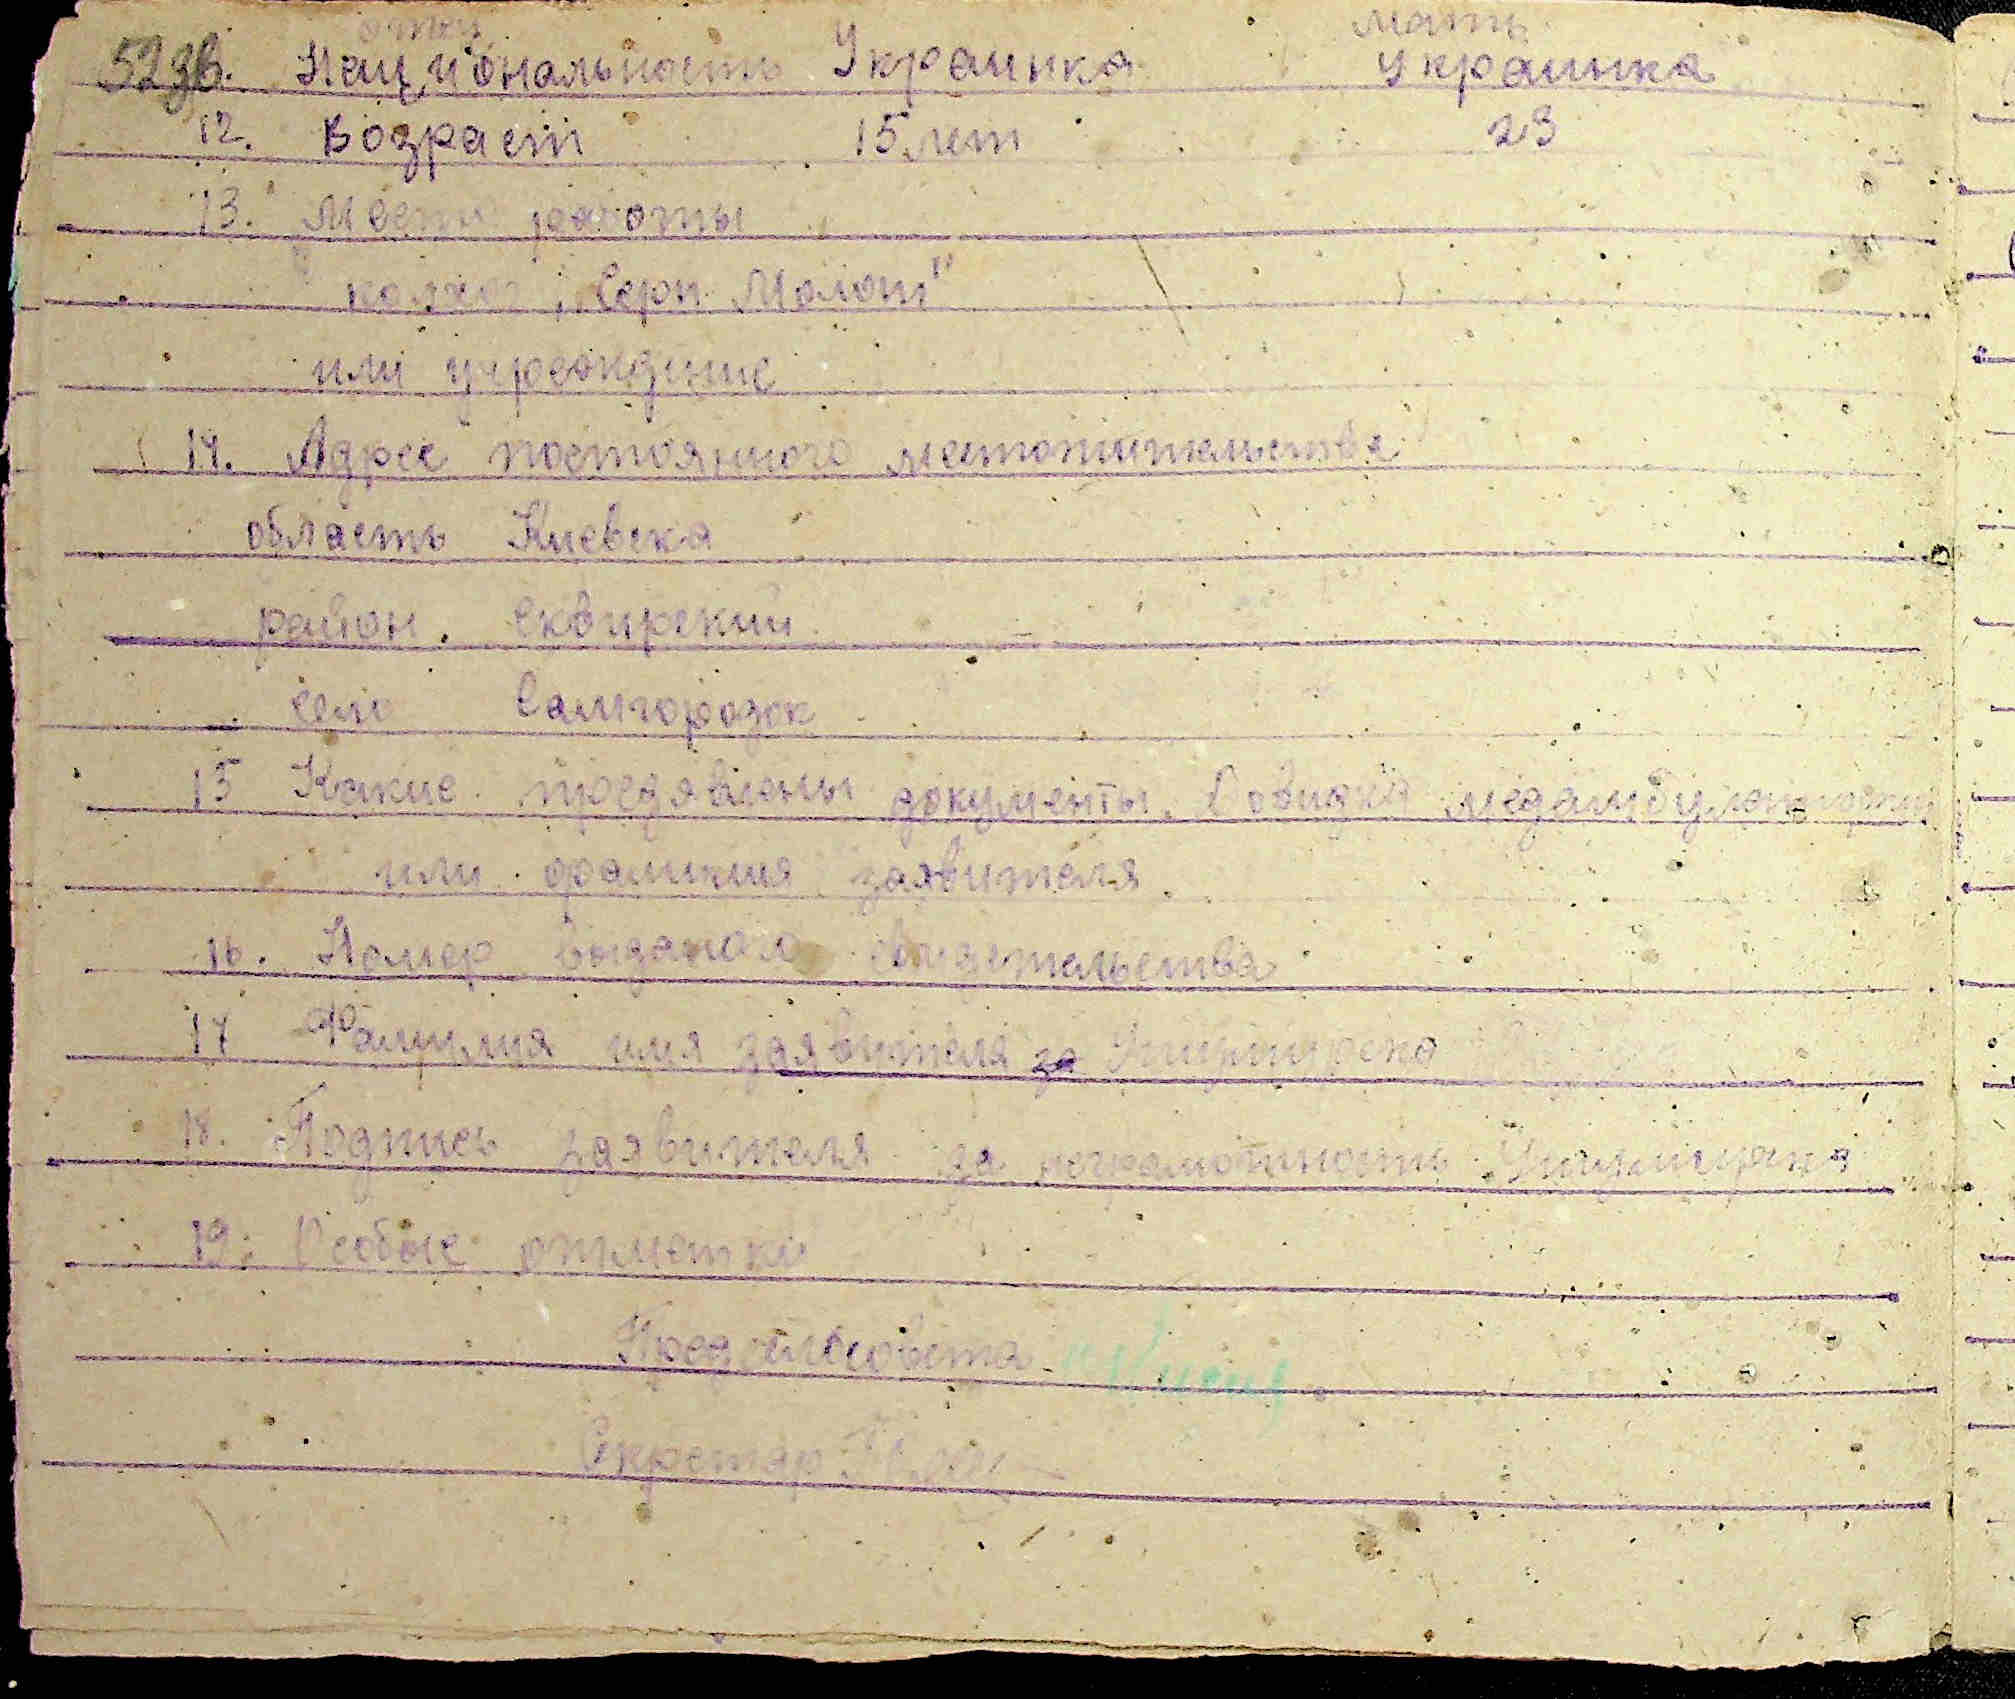 отец мать
52зв. Национальность Украинка Украинка
12. Возраст 15 лет 23
13. Место работы
колхоз „Серп Молот"
или учреждение
14. Адрес постоянного местожительства
область Киевска
район. Сквирский
село Самгородок
15 Какие предявлены документы. Довидка медамбулатории
или фамилия заявителя.
16. Номер выданого свидетельства
17 Фамилия имя заявителя за
18. Подпись заявителя за неграмотность
19. Особые отметки
Пред сельсовета
Секретар